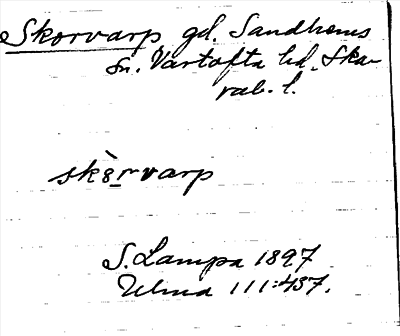 Skorvarp gd. Sandhems
sn. Vartofta hd. Ska-
rab. l.
skȣ̀rvarp
S. Lampa 1897
Ulma 111:437.